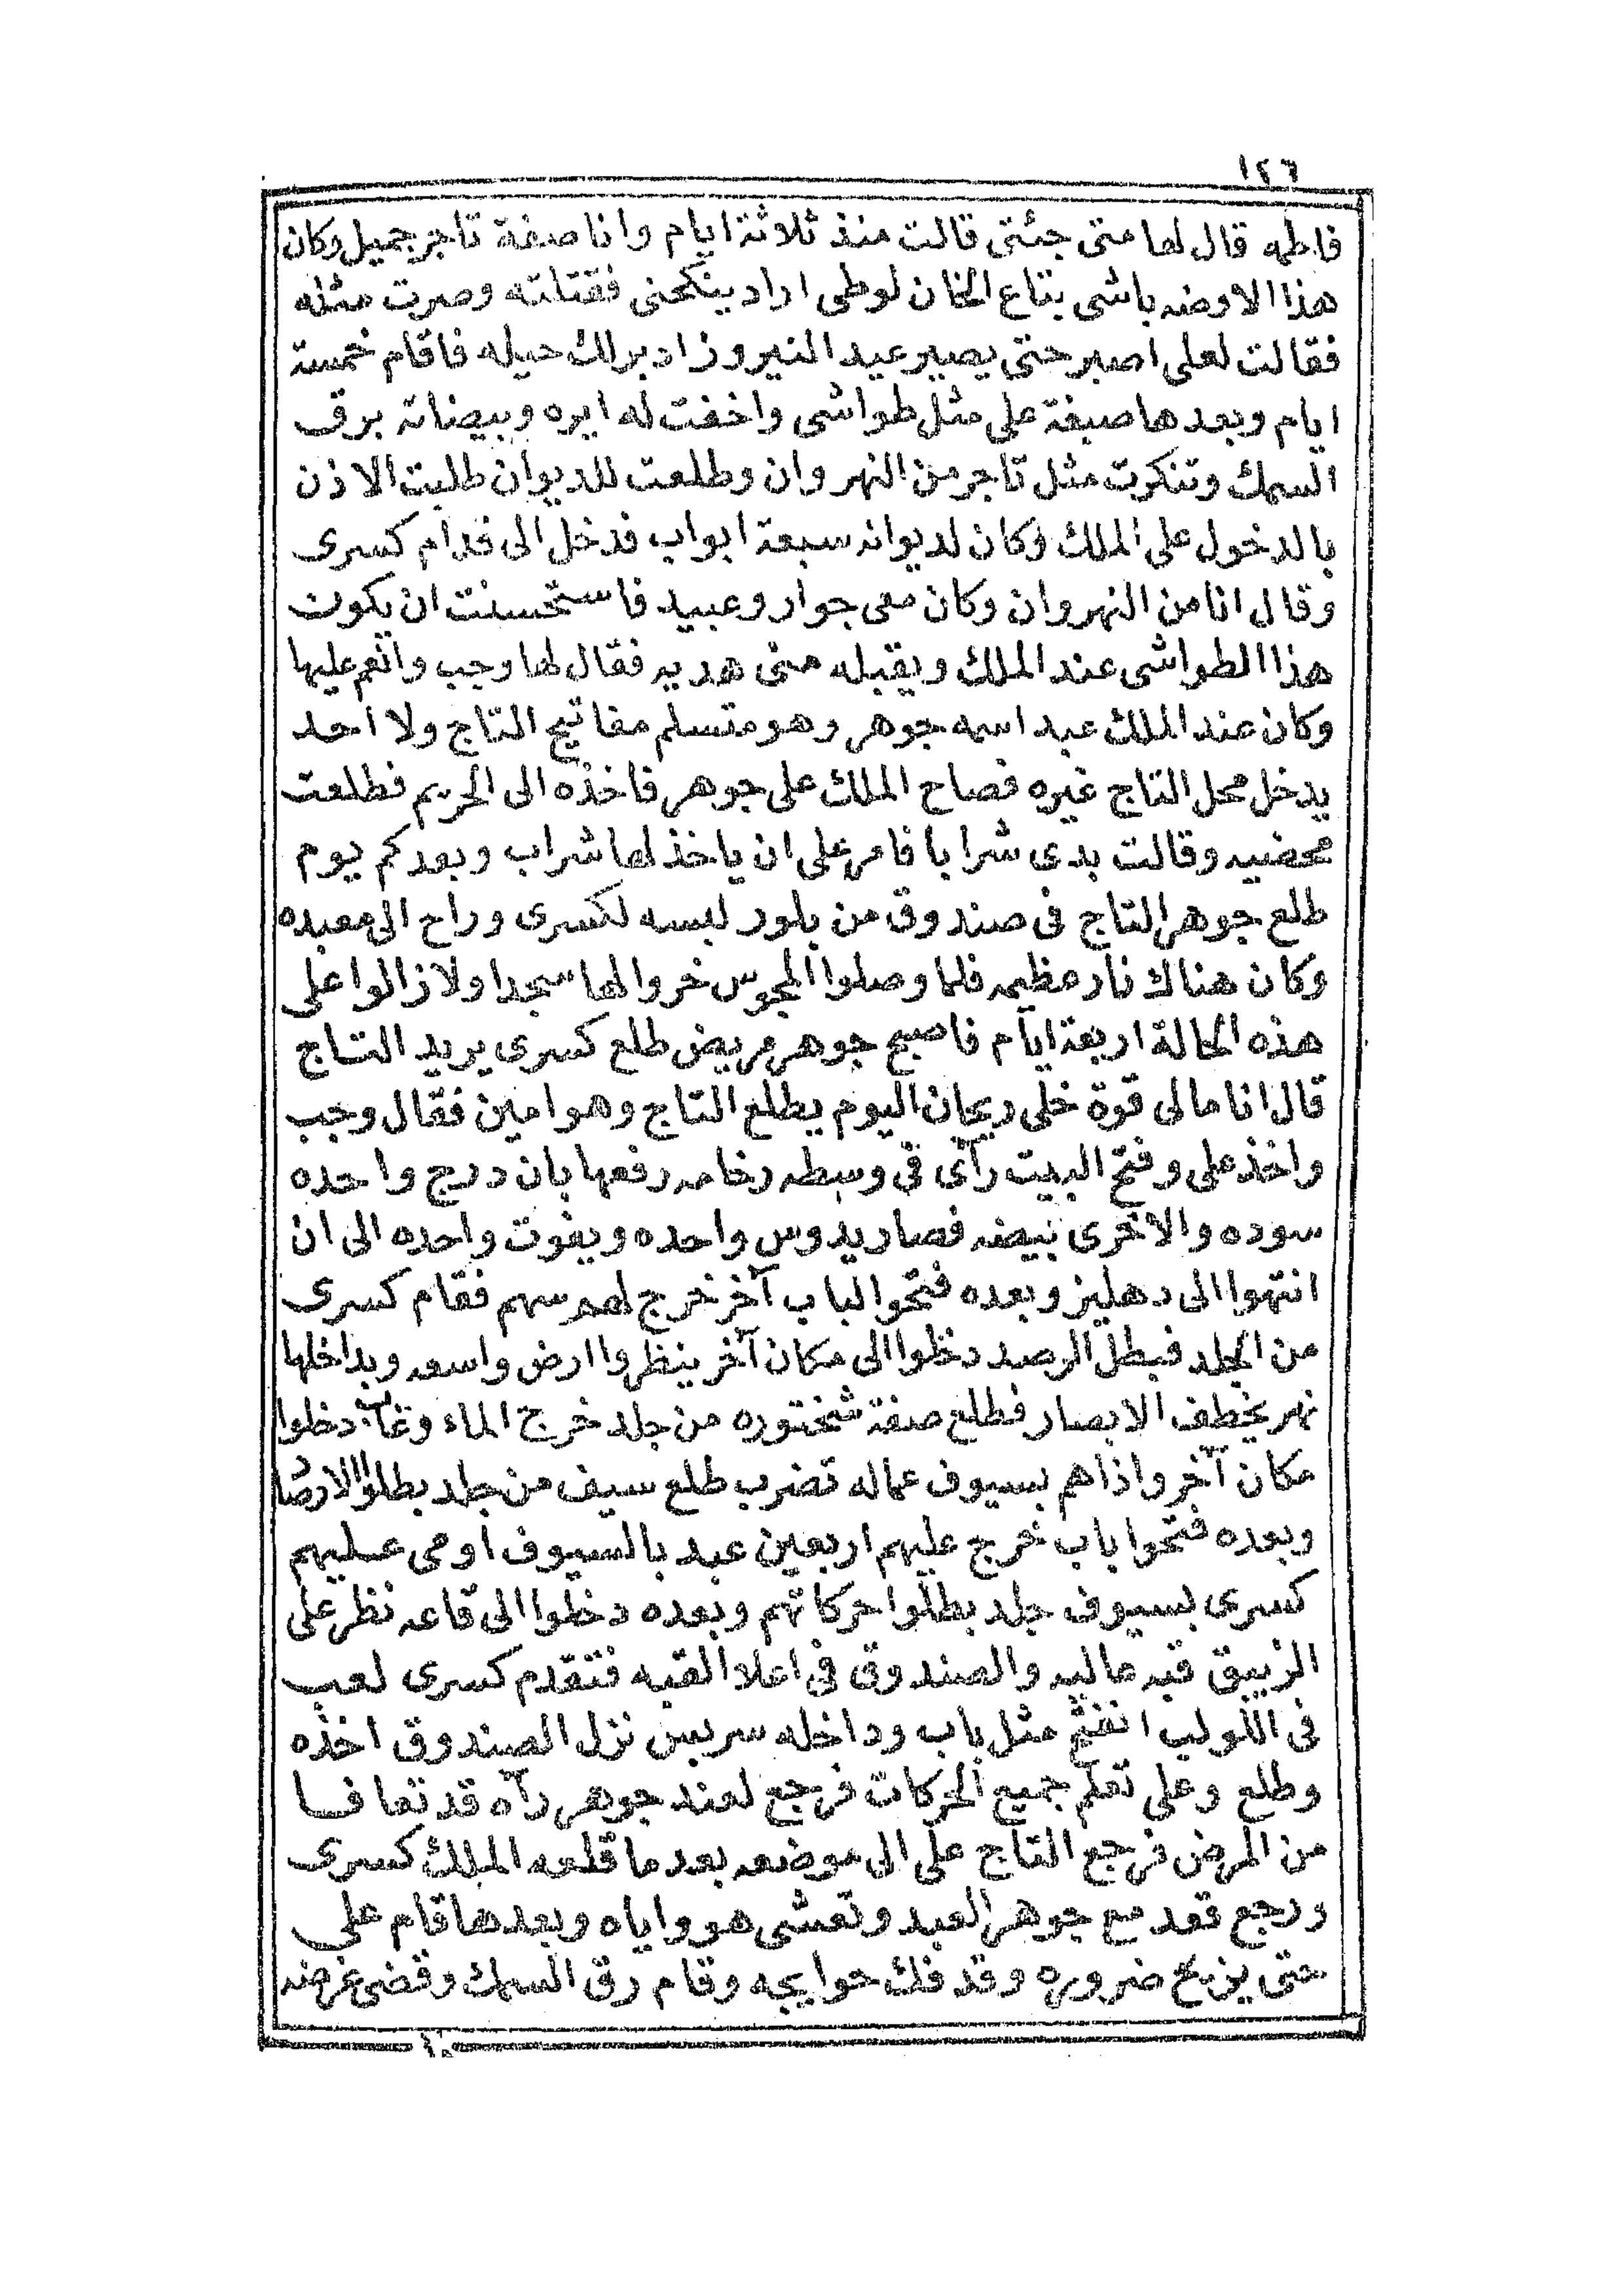 ١٢٦
فاطمه قال لها متى جئتى قالت منذ ثلاثة ايام وانا صفة تاجر جميل وكان
هذا الاوضه باشى بتاع الخان لوطى اراد ينكحنى فقتلته وصرت مثله
فقالت لعلى اصبر حتى يصير عيد النيروز ادبر لك حيله فاقام خمسة
ايام وبعدها صبغة على مثل طواشى واخفت له ايره وبيضاته برق
السمك وتنكرت مثل تاجر من النهروان وطلعت للديوان طلبت الاذن
بالدخول على الملك وكان لديوانه سبعة ابواب فدخل الى قدام كسرى
وقال انا من النهروان وكان معى جوار وعبيد فاستحسنت ان يكون
هذا الطواشى عند الملك ويقبله منى هديه فقال لها وجب وانعم عليها
وكان عند الملك عبد اسمه جوهر وهو متسلم مفاتيح التاج ولا احد
يدخل محل التاج غيره فصاح الملك على جوهر فاخذه الى الحريم فطلعت
محضيه وقالت بدى شرابا فامر على ان ياخذ لها شراب وبعد كم يوم
طلع جوهر التاج فى صندوق من بلور لبسه لكسرى وراح الى معبده
وكان هناك نار عظيمه فلما وصلوا المجوس خروا لها سجدا ولا زالوا على
هذه الحالة اربعة ايام فاصبح جوهر مريض طلع كسرى يريد التاج
قال انا مالى قوة خلى ريحان اليوم يطلع التاج وهو امين فقال وجب
واخذ على وفتح البيت رآى فى وسطه رخامه رفعها بان درج واحده
سوده والاخرى بيضه فصار يدوس واحده ويفوت واحده الى ان
انتهوا الى دهليز وبعده فتحوا لباب آخر خرج لهم سهم فقام كسرى
من الجلد فبطل الرصد دخلوا الى مكان آخر ينظروا ارض واسعه وبداخلها
نهر يخطف الابصار فطلع صفة شختوره من جلد خرج الماء وغاب دخلوا
مكان آخر واذا هم بسيوف عماله تضرب طلع سيف من جلد بطلوا الارصاد
وبعده فتحوا باب خرج عليهم اربعين عبد بالسيوف اومى عليهم
كسرى بسيوف جلد بطلوا حركاتهم وبعده دخلوا الى قاعه نظر على
الزيبق قبه عاليه والصندوق فى اعلا القبه فتقدم كسرى لعب
فى اللولب انفتح مثل باب وداخله سريس نزل الصندوق اخذه
وطلع وعلى تعلم جميع الحركات فرجع لعند جوهر رآه قد تعافا
من المرض فرجع التاج على الى موضعه بعد ما قلعه الملك كسرى
ورجع قعد مع جوهر العبد وتعشى هو واياه وبعدها قام على
حتى يزيح ضروره وقد فك حوايجه وقام رق السمك وقضى غرضه